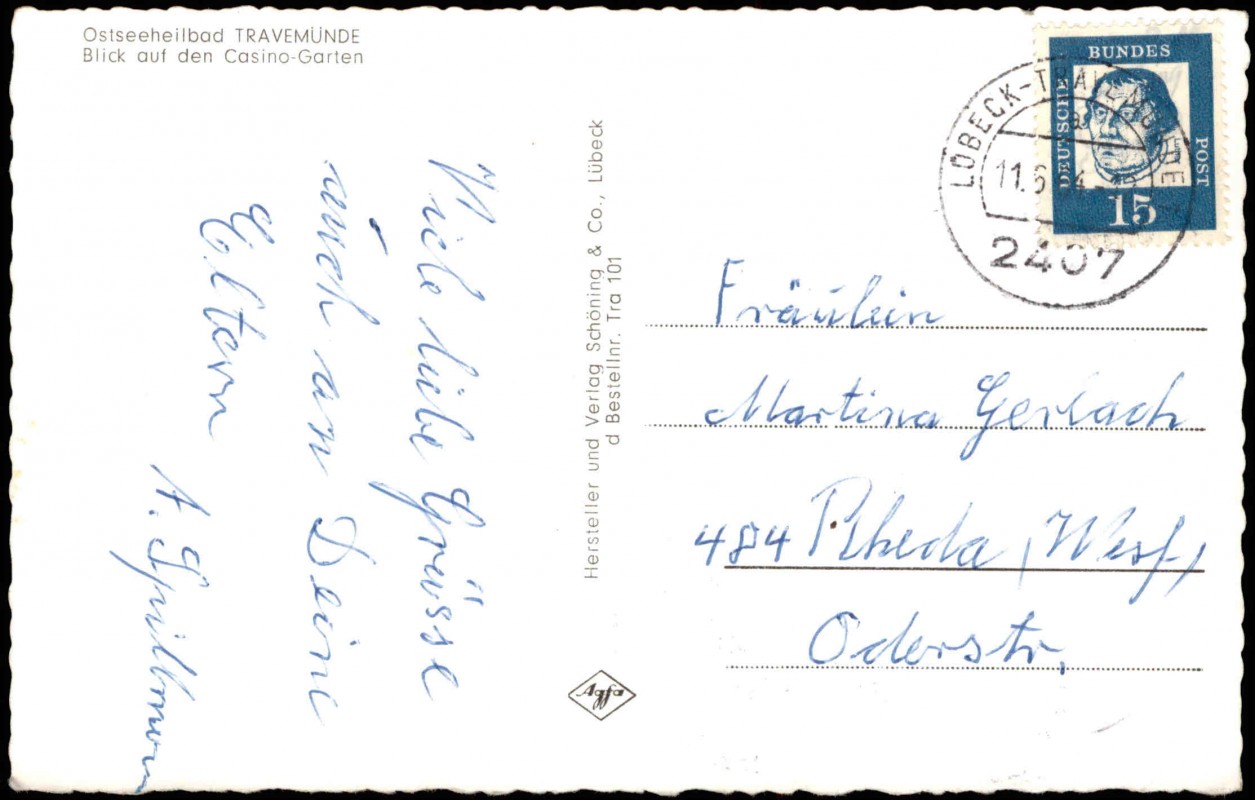 Ostseeheilbad TRAVEMÜNDE
Blick auf den Casino-Garten
Viele liebe Grüsse
auch an Deine
Eltern
A.
Hersteller und Verlag Schöning & Co., Lübeck
d Bestellnr. Tra 101
Agfa
DEUTSCHE BUNDES POST
15
LÜBECK-TRAVEMÜNDE
a
11.6. 4.
2407
Fräulein
Martina Gerlach
484 Rheda, Westf,
Oderstr.